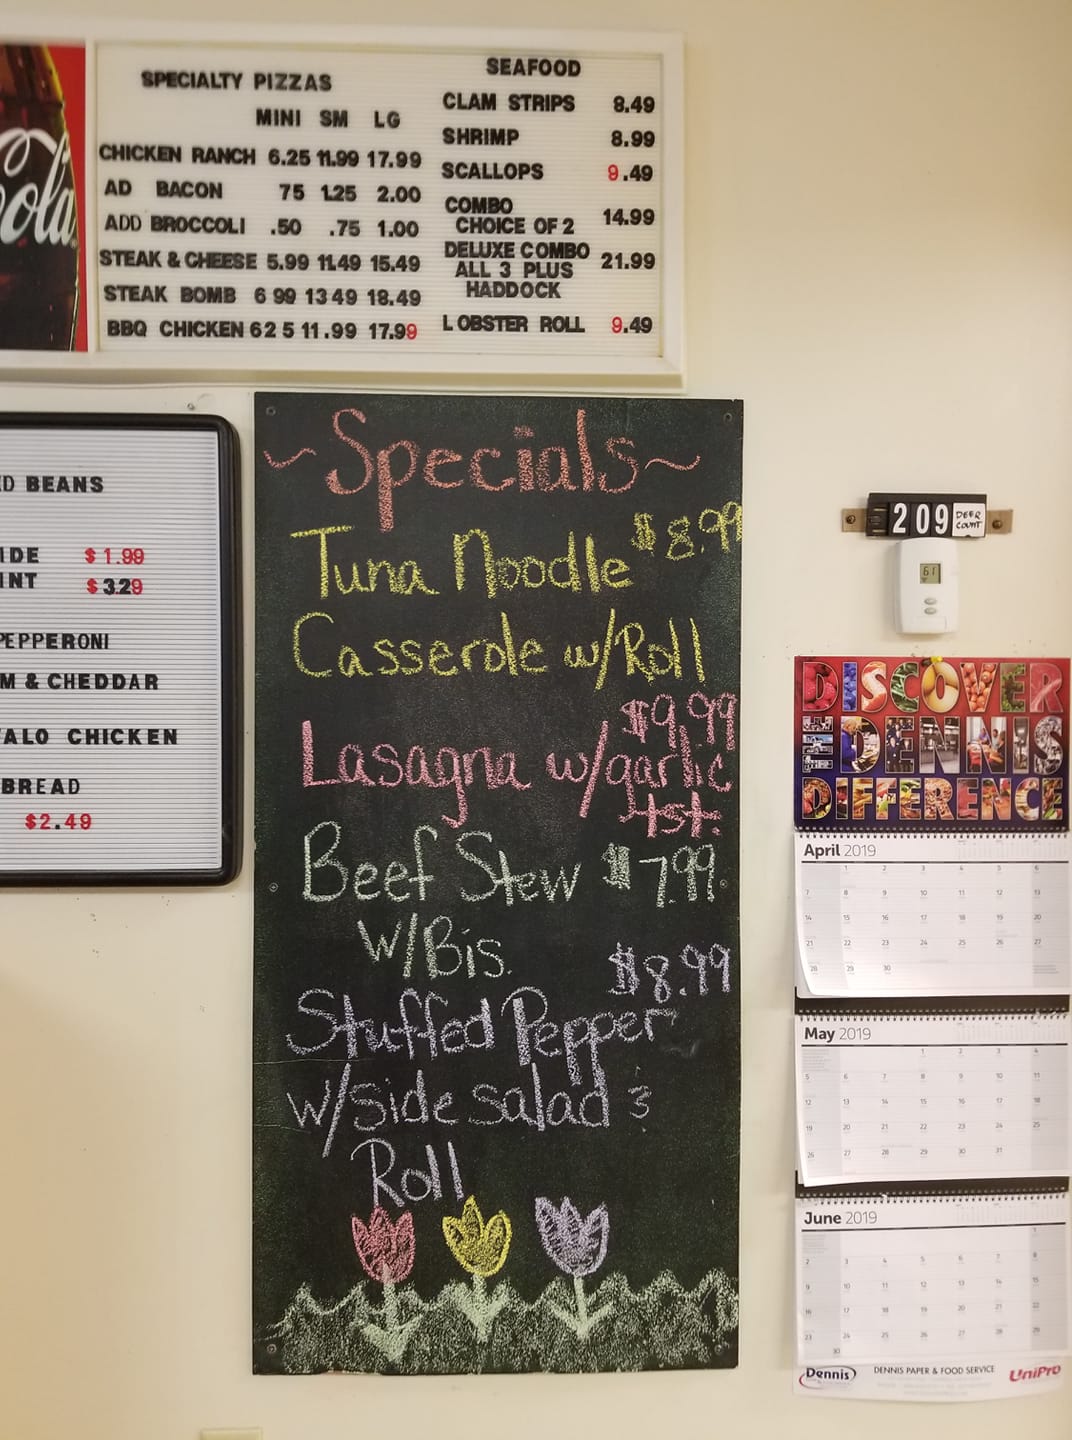 ola
SPECIALTY PIZZAS
MINI SM LG
CHICKEN RANCH 6.25 11.99 17.99
AD BACON 75 1.25 2.00
ADD BROCCOLI .50 .75 1.00
STEAK & CHEESE 5.99 11.49 15.49
STEAK BOMB 6 99 13 49 18.49
BBQ CHICKEN 6 2 5 11 .99 17.99
SEAFOOD
CLAM STRIPS 8.49
SHRIMP 8.99
SCALLOPS 9.49
COMBO
CHOICE OF 2 14.99
DELUXE COMBO
ALL 3 PLUS 21.99
HADDOCK
LOBSTER ROLL 9.49
D BEANS
IDE $1.99
INT $3.29
PEPPERONI
M & CHEDDAR
ALO CHICKEN
BREAD
$2.49
~Specials~
Tuna Noodle $8.99
Casserole w/Roll
$9.99
Lasagna w/garlic
tst.
Beef Stew $7.99
w/Bis.
$8.99
Stuffed Pepper
w/side salad &
Roll
209 DEER COUNT
61
DISCOVER
THE DENNIS
DIFFERENCE
April 2019
1 2 3 4 5 6
7 8 9 10 11 12 13
14 15 16 17 18 19 20
21 22 23 24 25 26 27
28 29 30
May 2019
1 2 3 4
5 6 7 8 9 10 11
12 13 14 15 16 17 18
19 20 21 22 23 24 25
26 27 28 29 30 31
June 2019
1
2 3 4 5 6 7 8
9 10 11 12 13 14 15
16 17 18 19 20 21 22
23 24 25 26 27 28 29
30
Dennis DENNIS PAPER & FOOD SERVICE UniPro